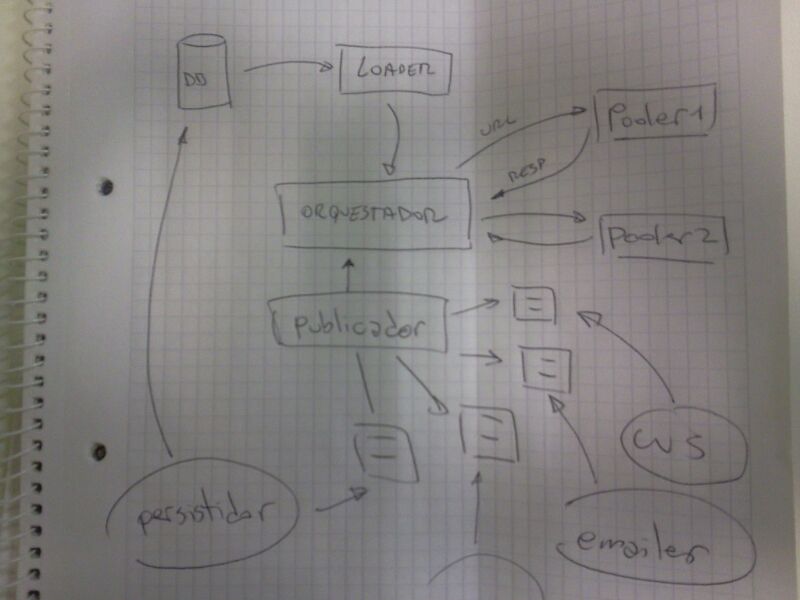 LOADER
URL
Pooler 1
RESP
ORQUESTADOR
Pooler 2
publicador
persistidor
emailer